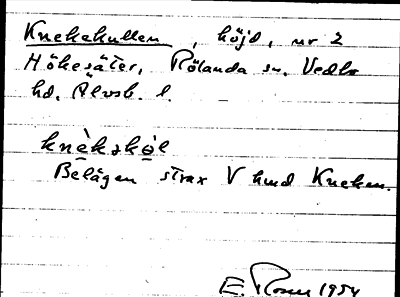 Knekekullen, höjd, nr 2
Hökesäter, Rölanda sn. Vedbo
hd. Älvsb. l.
knèkəkòl
Belägen strax V hmd Kneken.
E. Rosen 1954